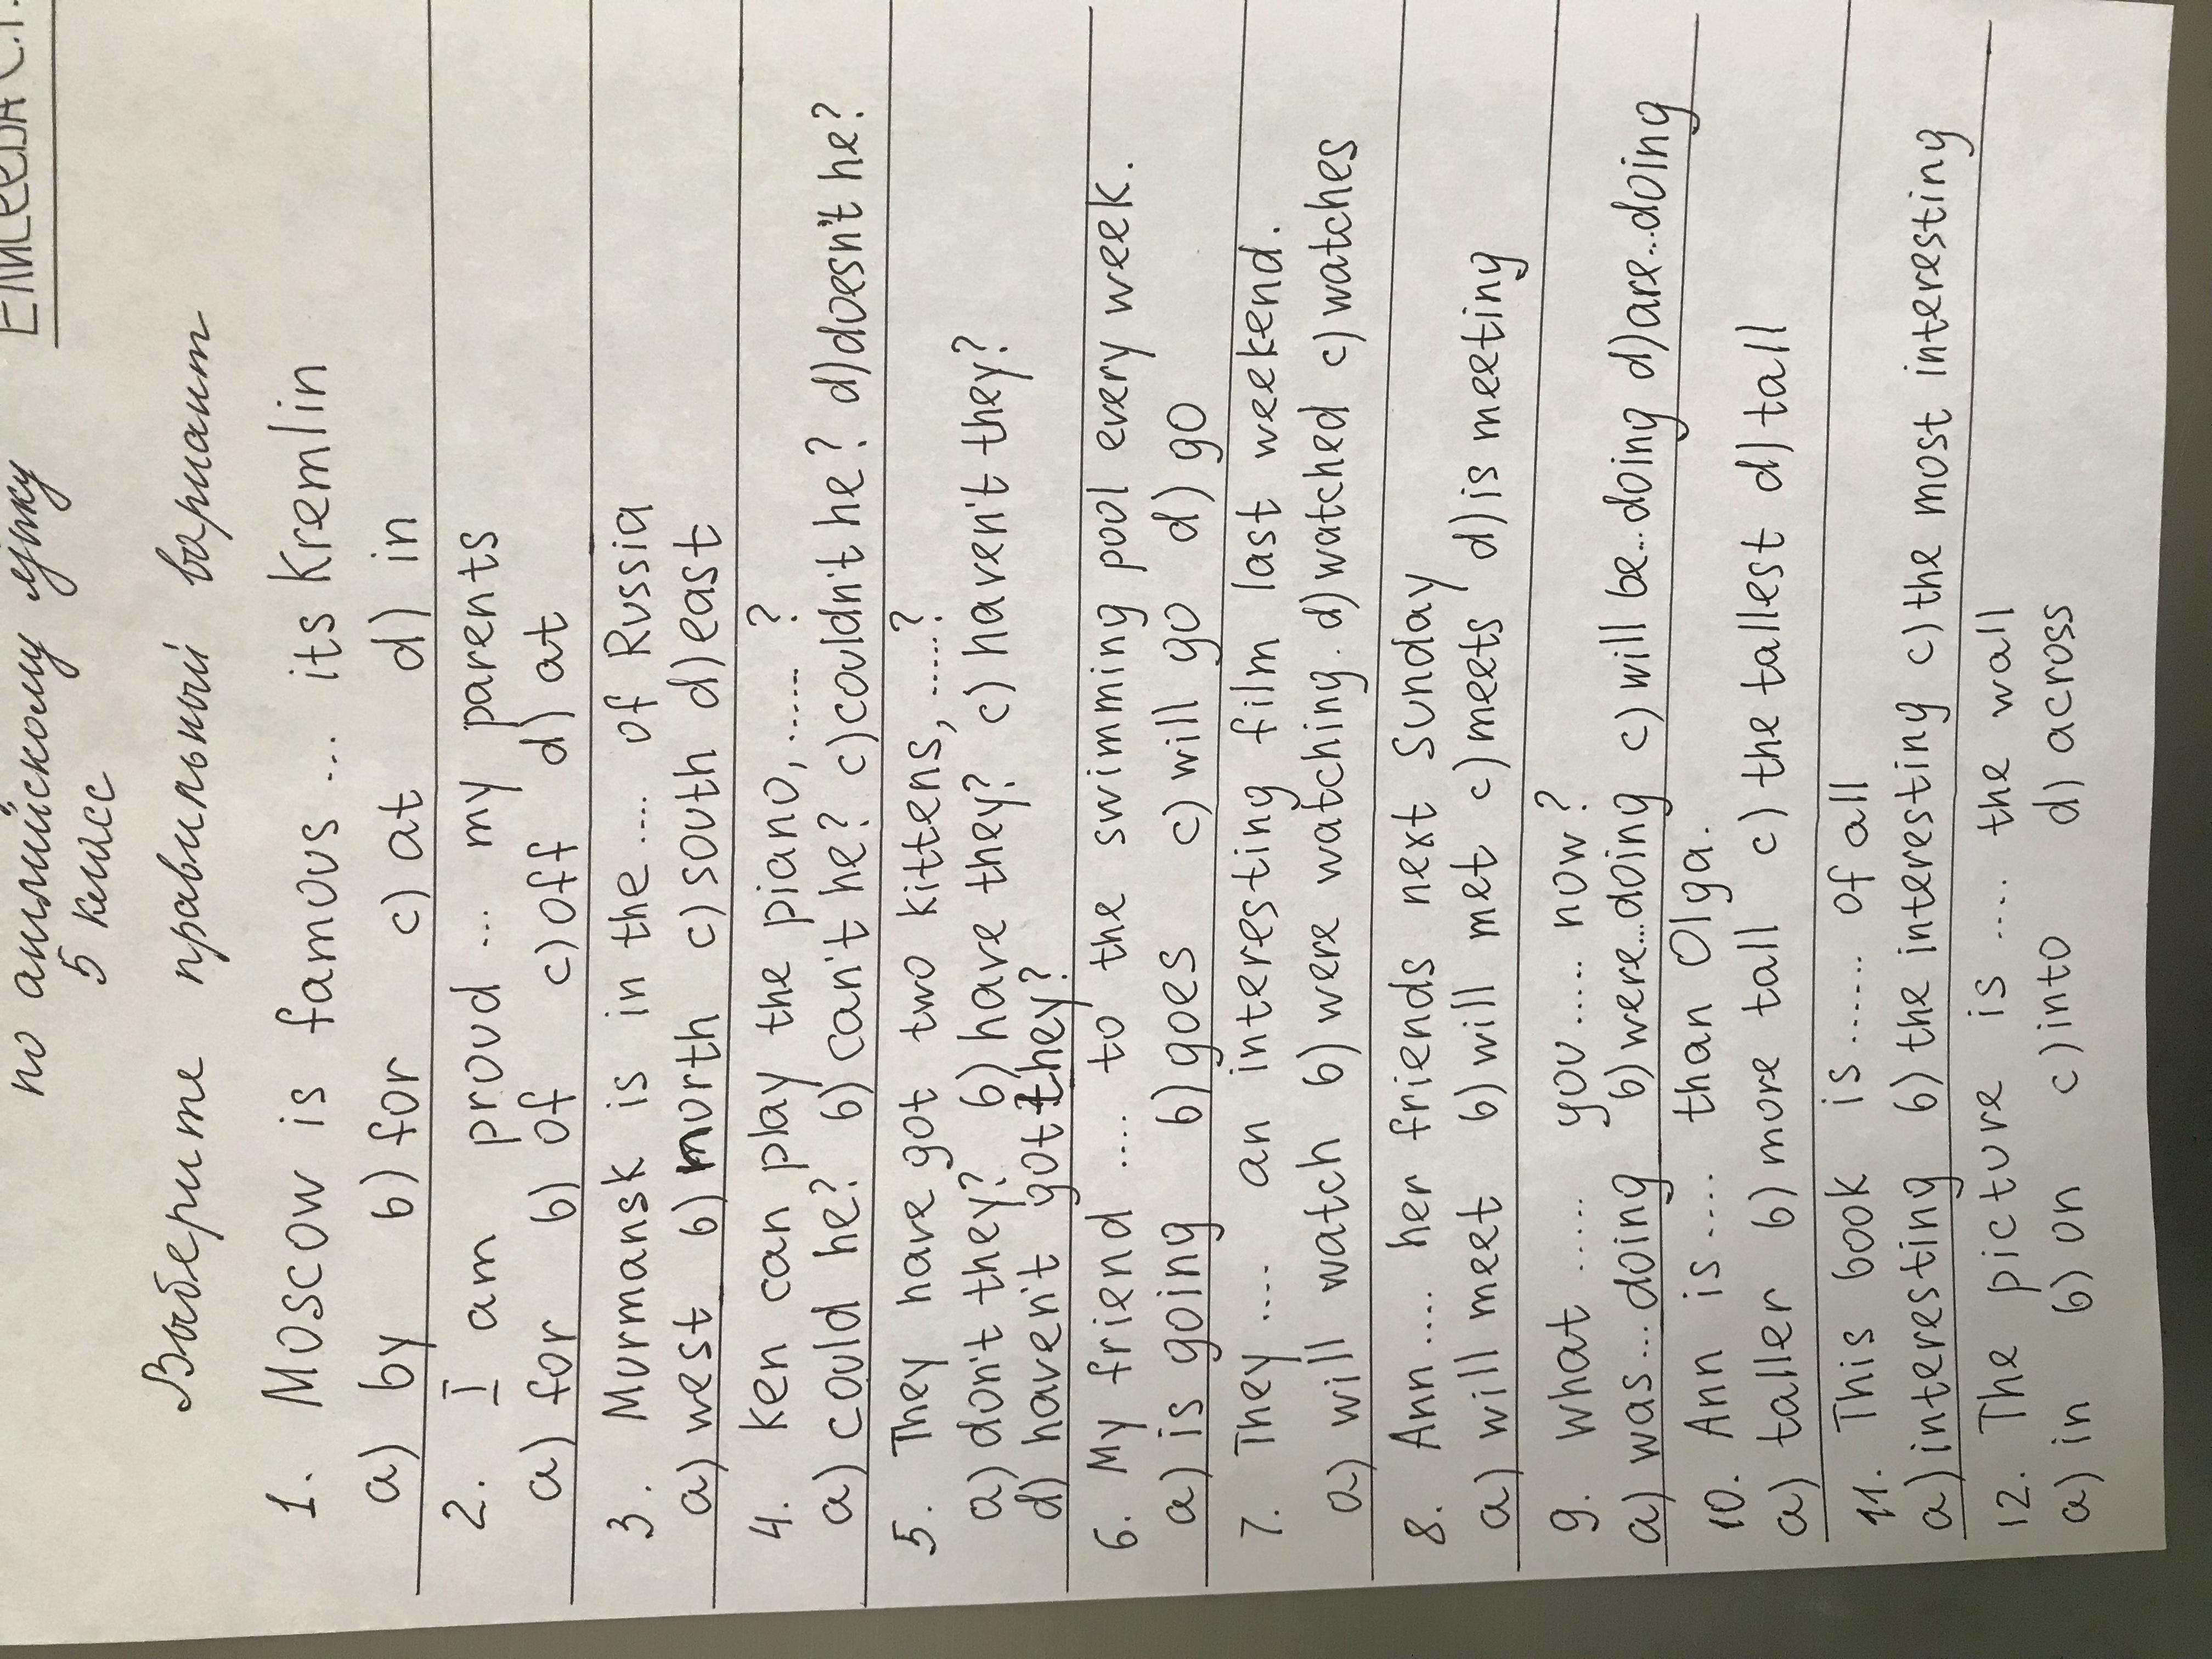 по английскому языку
5 класс
Выберите правильный вариант
1. Moscow is famous ... its Kremlin
a) by b) for c) at d) in
2. I am proud ... my parents
a) for b) of c) off d) at
3. Murmansk is in the .... of Russia
a) west b) north c) south d) east
4. Ken can play the piano, ...... ?
a) could he? b) can't he? c) couldn't he? d) doesn't he?
5. They have got two kittens, .....?
a) don't they? b) have they? c) haven't they?
d) haven't got they?
6. My friend .... to the swimming pool every week.
a) is going b) goes c) will go d) go
7. They .... an interesting film last weekend.
a) will watch b) were watching. d) watched c) watches
8. Ann .... her friends next Sunday
a) will meet b) will met c) meets d) is meeting
9. What ..... you ..... now?
a) was...doing b) were...doing c) will be...doing d) are...doing
10. Ann is .... than Olga.
a) taller b) more tall c) the tallest d) tall
11. This book is ...... of all
a) interesting b) the interesting c) the most interesting
12. The picture is .... the wall
a) in b) on c) into d) across